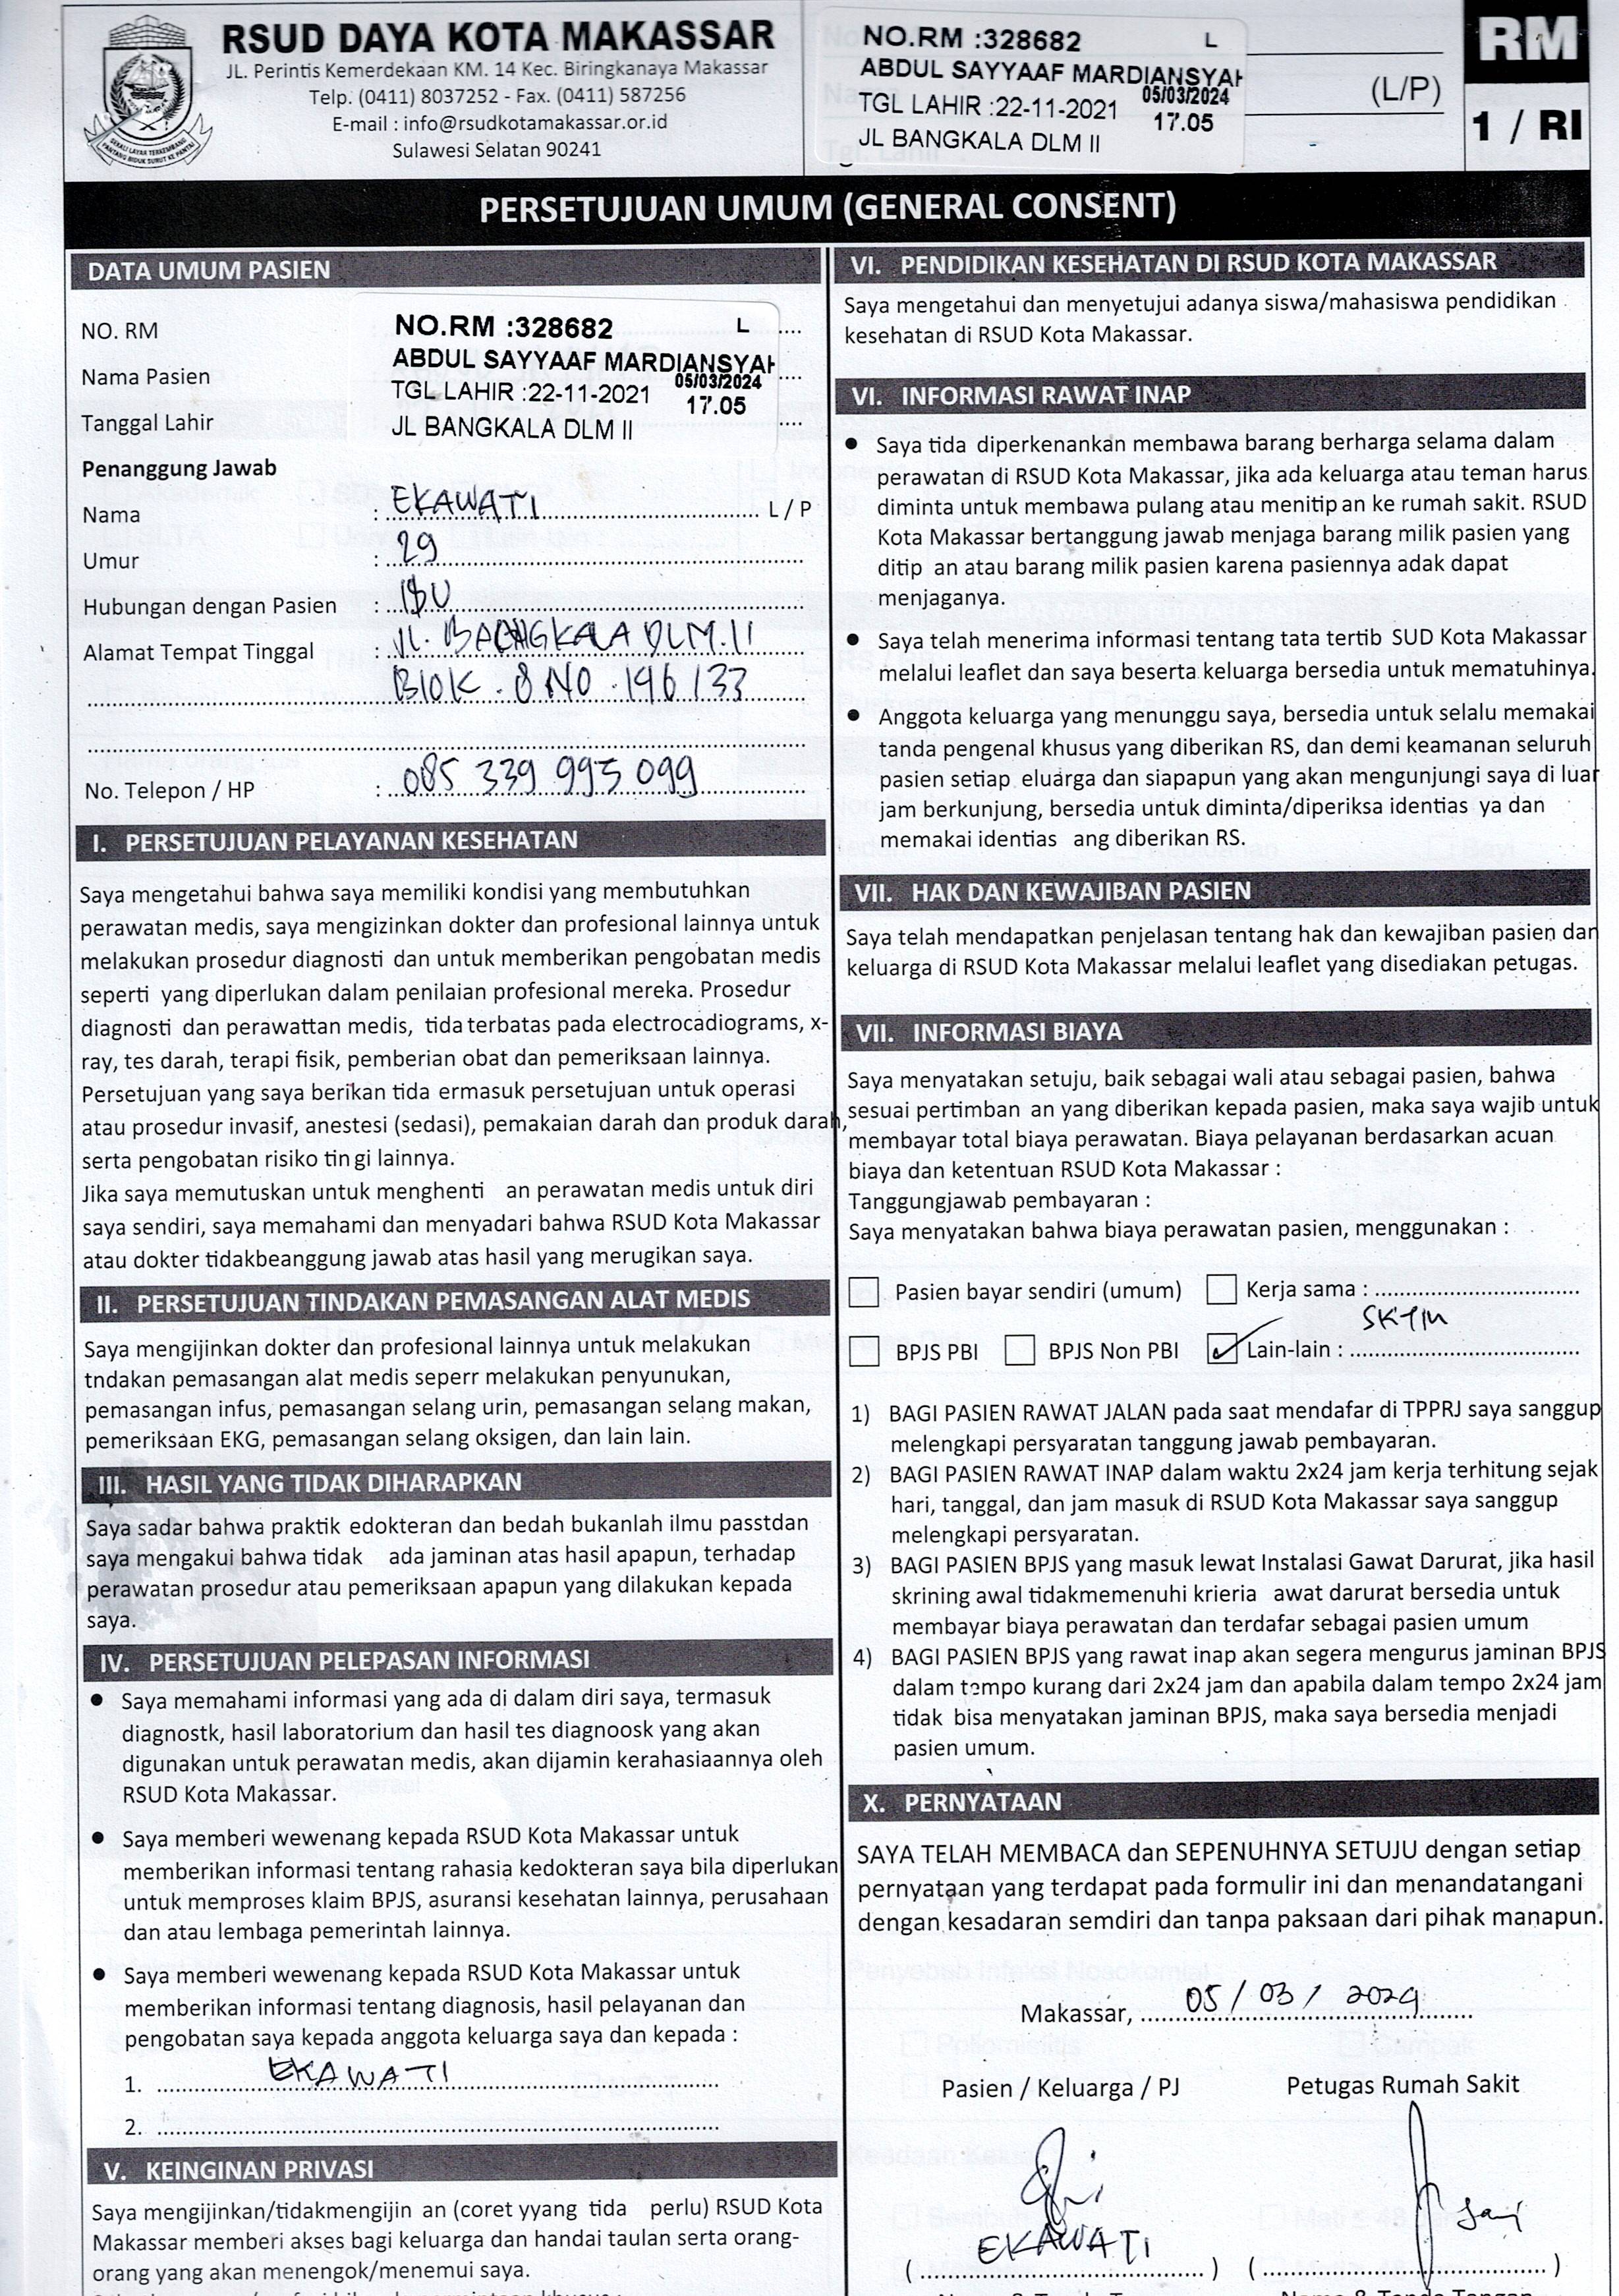 RSUD DAYA KOTA MAKASSAR
JL. Perintis Kemerdekaan KM. 14 Kec. Biringkanaya Makassar
Telp. (0411) 8037252 - Fax. (0411) 587256
E-mail : info@rsudkotamakassar.or.id
Sulawesi Selatan 90241
NO.RM :328682 L
ABDUL SAYYAAF MARDIANSYAH
05/03/2024
TGL LAHIR :22-11-2021
17.05
JL BANGKALA DLM II
(L/P)
RM
1 / RI
PERSETUJUAN UMUM (GENERAL CONSENT)
DATA UMUM PASIEN
NO. RM
Nama Pasien
Tanggal Lahir
NO.RM :328682 L
ABDUL SAYYAAF MARDIANSYAH
05/03/2024
TGL LAHIR :22-11-2021
17.05
JL BANGKALA DLM II
Penanggung Jawab
Nama : EKAWATI L / P
Umur : 29
Hubungan dengan Pasien : IBU
Alamat Tempat Tinggal : JL. BANGKALA DLM.II
BLOK . 8 NO . 196 / 33
No. Telepon / HP : 085 339 995 099
I. PERSETUJUAN PELAYANAN KESEHATAN
Saya mengetahui bahwa saya memiliki kondisi yang membutuhkan
perawatan medis, saya mengizinkan dokter dan profesional lainnya untuk
melakukan prosedur diagnosti dan untuk memberikan pengobatan medis
seperti yang diperlukan dalam penilaian profesional mereka. Prosedur
diagnosti dan perawattan medis, tida terbatas pada electrocadiograms, x-
ray, tes darah, terapi fisik, pemberian obat dan pemeriksaan lainnya.
Persetujuan yang saya berikan tida ermasuk persetujuan untuk operasi
atau prosedur invasif, anestesi (sedasi), pemakaian darah dan produk darah,
serta pengobatan risiko tin gi lainnya.
Jika saya memutuskan untuk menghenti an perawatan medis untuk diri
saya sendiri, saya memahami dan menyadari bahwa RSUD Kota Makassar
atau dokter tidakbeanggung jawab atas hasil yang merugikan saya.
II. PERSETUJUAN TINDAKAN PEMASANGAN ALAT MEDIS
Saya mengijinkan dokter dan profesional lainnya untuk melakukan
tndakan pemasangan alat medis seperr melakukan penyunukan,
pemasangan infus, pemasangan selang urin, pemasangan selang makan,
pemeriksaan EKG, pemasangan selang oksigen, dan lain lain.
III. HASIL YANG TIDAK DIHARAPKAN
Saya sadar bahwa praktik edokteran dan bedah bukanlah ilmu passtdan
saya mengakui bahwa tidak ada jaminan atas hasil apapun, terhadap
perawatan prosedur atau pemeriksaan apapun yang dilakukan kepada
saya.
IV. PERSETUJUAN PELEPASAN INFORMASI
• Saya memahami informasi yang ada di dalam diri saya, termasuk
diagnostk, hasil laboratorium dan hasil tes diagnoosk yang akan
digunakan untuk perawatan medis, akan dijamin kerahasiaannya oleh
RSUD Kota Makassar.
• Saya memberi wewenang kepada RSUD Kota Makassar untuk
memberikan informasi tentang rahasia kedokteran saya bila diperlukan
untuk memproses klaim BPJS, asuransi kesehatan lainnya, perusahaan
dan atau lembaga pemerintah lainnya.
• Saya memberi wewenang kepada RSUD Kota Makassar untuk
memberikan informasi tentang diagnosis, hasil pelayanan dan
pengobatan saya kepada anggota keluarga saya dan kepada :
1. EKAWATI
2.
V. KEINGINAN PRIVASI
Saya mengijinkan/tidakmengijin an (coret yyang tida perlu) RSUD Kota
Makassar memberi akses bagi keluarga dan handai taulan serta orang-
orang yang akan menengok/menemui saya.
VI. PENDIDIKAN KESEHATAN DI RSUD KOTA MAKASSAR
Saya mengetahui dan menyetujui adanya siswa/mahasiswa pendidikan
kesehatan di RSUD Kota Makassar.
VI. INFORMASI RAWAT INAP
• Saya tida diperkenankan membawa barang berharga selama dalam
perawatan di RSUD Kota Makassar, jika ada keluarga atau teman harus
diminta untuk membawa pulang atau menitip an ke rumah sakit. RSUD
Kota Makassar bertanggung jawab menjaga barang milik pasien yang
ditip an atau barang milik pasien karena pasiennya adak dapat
menjaganya.
• Saya telah menerima informasi tentang tata tertib SUD Kota Makassar
melalui leaflet dan saya beserta keluarga bersedia untuk mematuhinya.
• Anggota keluarga yang menunggu saya, bersedia untuk selalu memakai
tanda pengenal khusus yang diberikan RS, dan demi keamanan seluruh
pasien setiap eluarga dan siapapun yang akan mengunjungi saya di luar
jam berkunjung, bersedia untuk diminta/diperiksa identias ya dan
memakai identias ang diberikan RS.
VII. HAK DAN KEWAJIBAN PASIEN
Saya telah mendapatkan penjelasan tentang hak dan kewajiban pasien dan
keluarga di RSUD Kota Makassar melalui leaflet yang disediakan petugas.
VII. INFORMASI BIAYA
Saya menyatakan setuju, baik sebagai wali atau sebagai pasien, bahwa
sesuai pertimban an yang diberikan kepada pasien, maka saya wajib untuk
membayar total biaya perawatan. Biaya pelayanan berdasarkan acuan
biaya dan ketentuan RSUD Kota Makassar :
Tanggungjawab pembayaran :
Saya menyatakan bahwa biaya perawatan pasien, menggunakan :
☐ Pasien bayar sendiri (umum) ☐ Kerja sama :
☐ BPJS PBI ☐ BPJS Non PBI ☑ Lain-lain : SKTM
1) BAGI PASIEN RAWAT JALAN pada saat mendafar di TPPRJ saya sanggup
melengkapi persyaratan tanggung jawab pembayaran.
2) BAGI PASIEN RAWAT INAP dalam waktu 2x24 jam kerja terhitung sejak
hari, tanggal, dan jam masuk di RSUD Kota Makassar saya sanggup
melengkapi persyaratan.
3) BAGI PASIEN BPJS yang masuk lewat Instalasi Gawat Darurat, jika hasil
skrining awal tidakmemenuhi krieria awat darurat bersedia untuk
membayar biaya perawatan dan terdafar sebagai pasien umum
4) BAGI PASIEN BPJS yang rawat inap akan segera mengurus jaminan BPJS
dalam tempo kurang dari 2x24 jam dan apabila dalam tempo 2x24 jam
tidak bisa menyatakan jaminan BPJS, maka saya bersedia menjadi
pasien umum.
X. PERNYATAAN
SAYA TELAH MEMBACA dan SEPENUHNYA SETUJU dengan setiap
pernyataan yang terdapat pada formulir ini dan menandatangani
dengan kesadaran semdiri dan tanpa paksaan dari pihak manapun.
Makassar, 05 / 03 / 2024
Pasien / Keluarga / PJ Petugas Rumah Sakit
( EKAWATI ) ( )